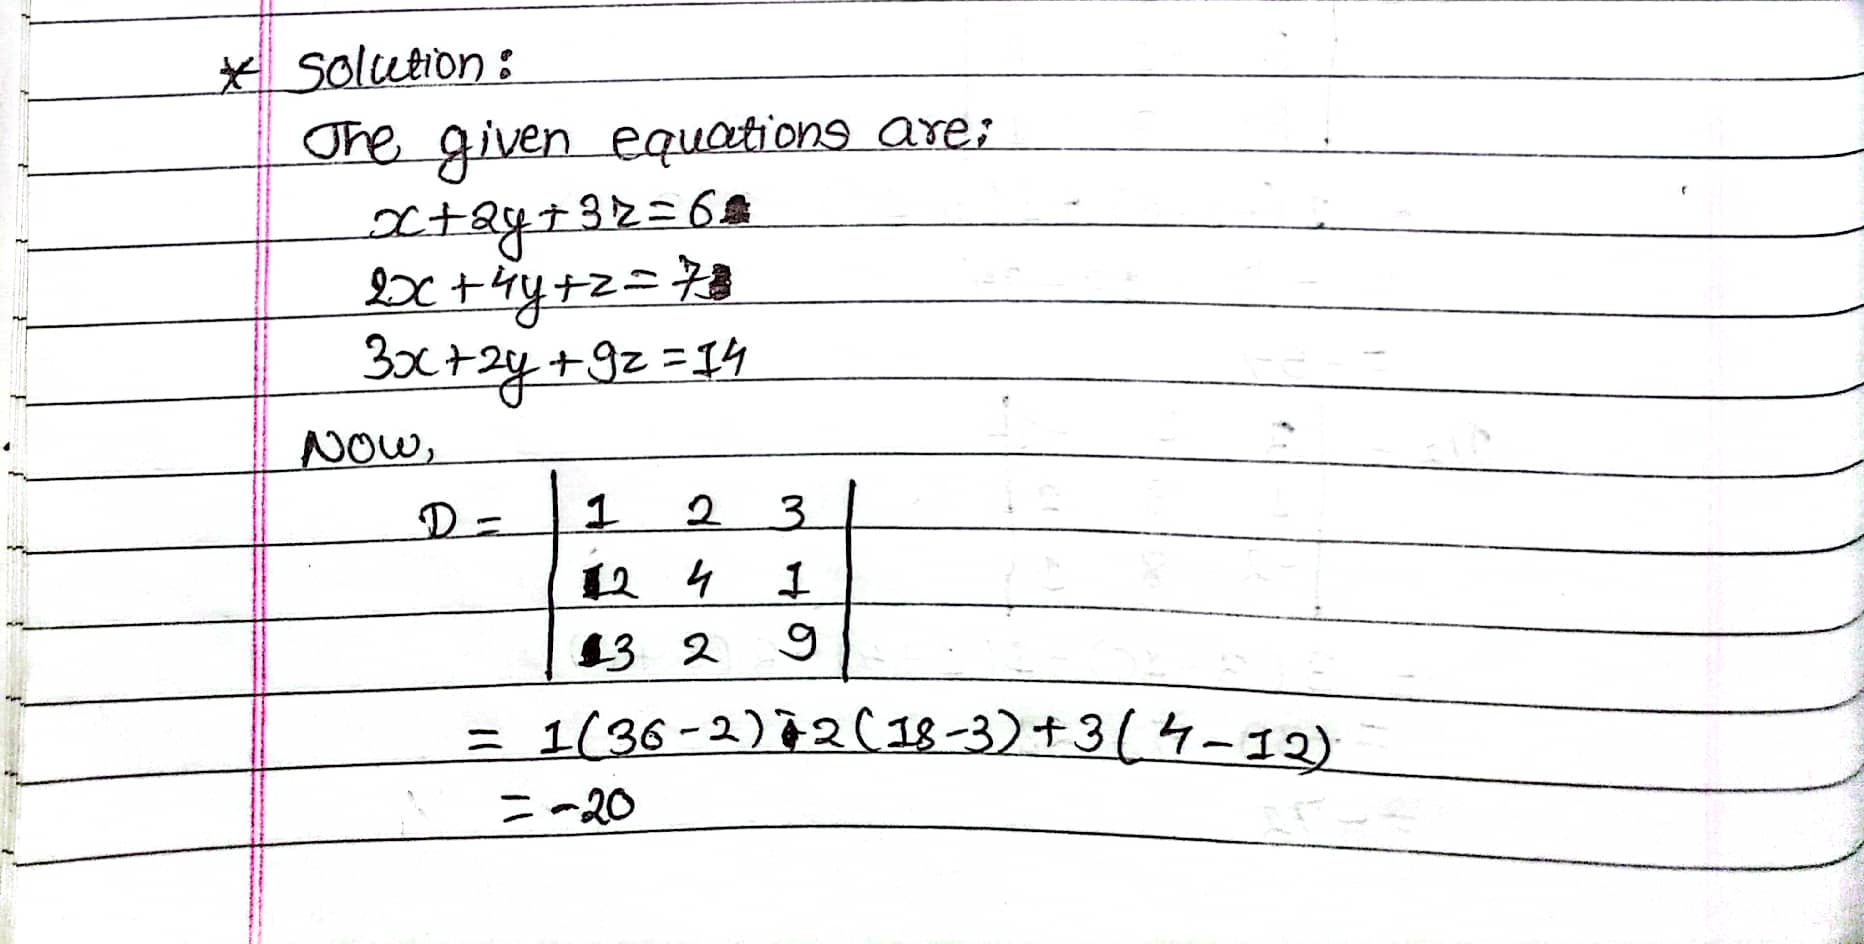 * Solution:
The given equations are:
x+2y+3z=6
2x+4y+z=7
3x+2y+9z=14
Now,
D= | 1 2 3 |
| 2 4 1 |
| 3 2 9 |
= 1(36-2)-2(18-3)+3(4-12)
= -20